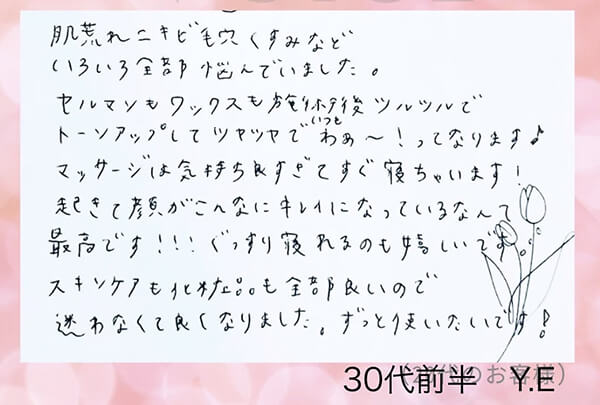 肌荒れニキビ毛穴くすみなど
いろいろ全部悩んでいました。
セルマンもワックスも施術後ツルツルで
いつも
トーンアップしてツヤツヤでわぁ〜!ってなります♪
マッサージは気持ち良すぎてすぐ寝ちゃいます!
起きて顔がこんなにキレイになっているなんて
最高です!!!ぐっすり寝れるのも嬉しいです
スキンケアも化粧品も全部良いので
迷わなくて良くなりました。ずっと使いたいです!
のお客様)
30代前半 Y.E